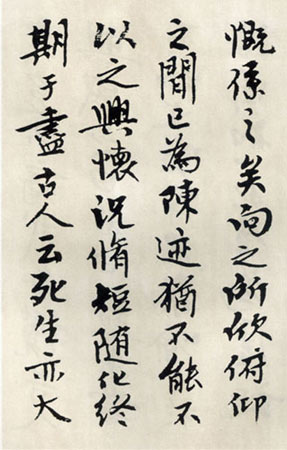 慨係之矣向之所欣俯仰
之間已為陳迹猶不能不
以之興懷況脩短隨化終
期于盡古人云死生亦大